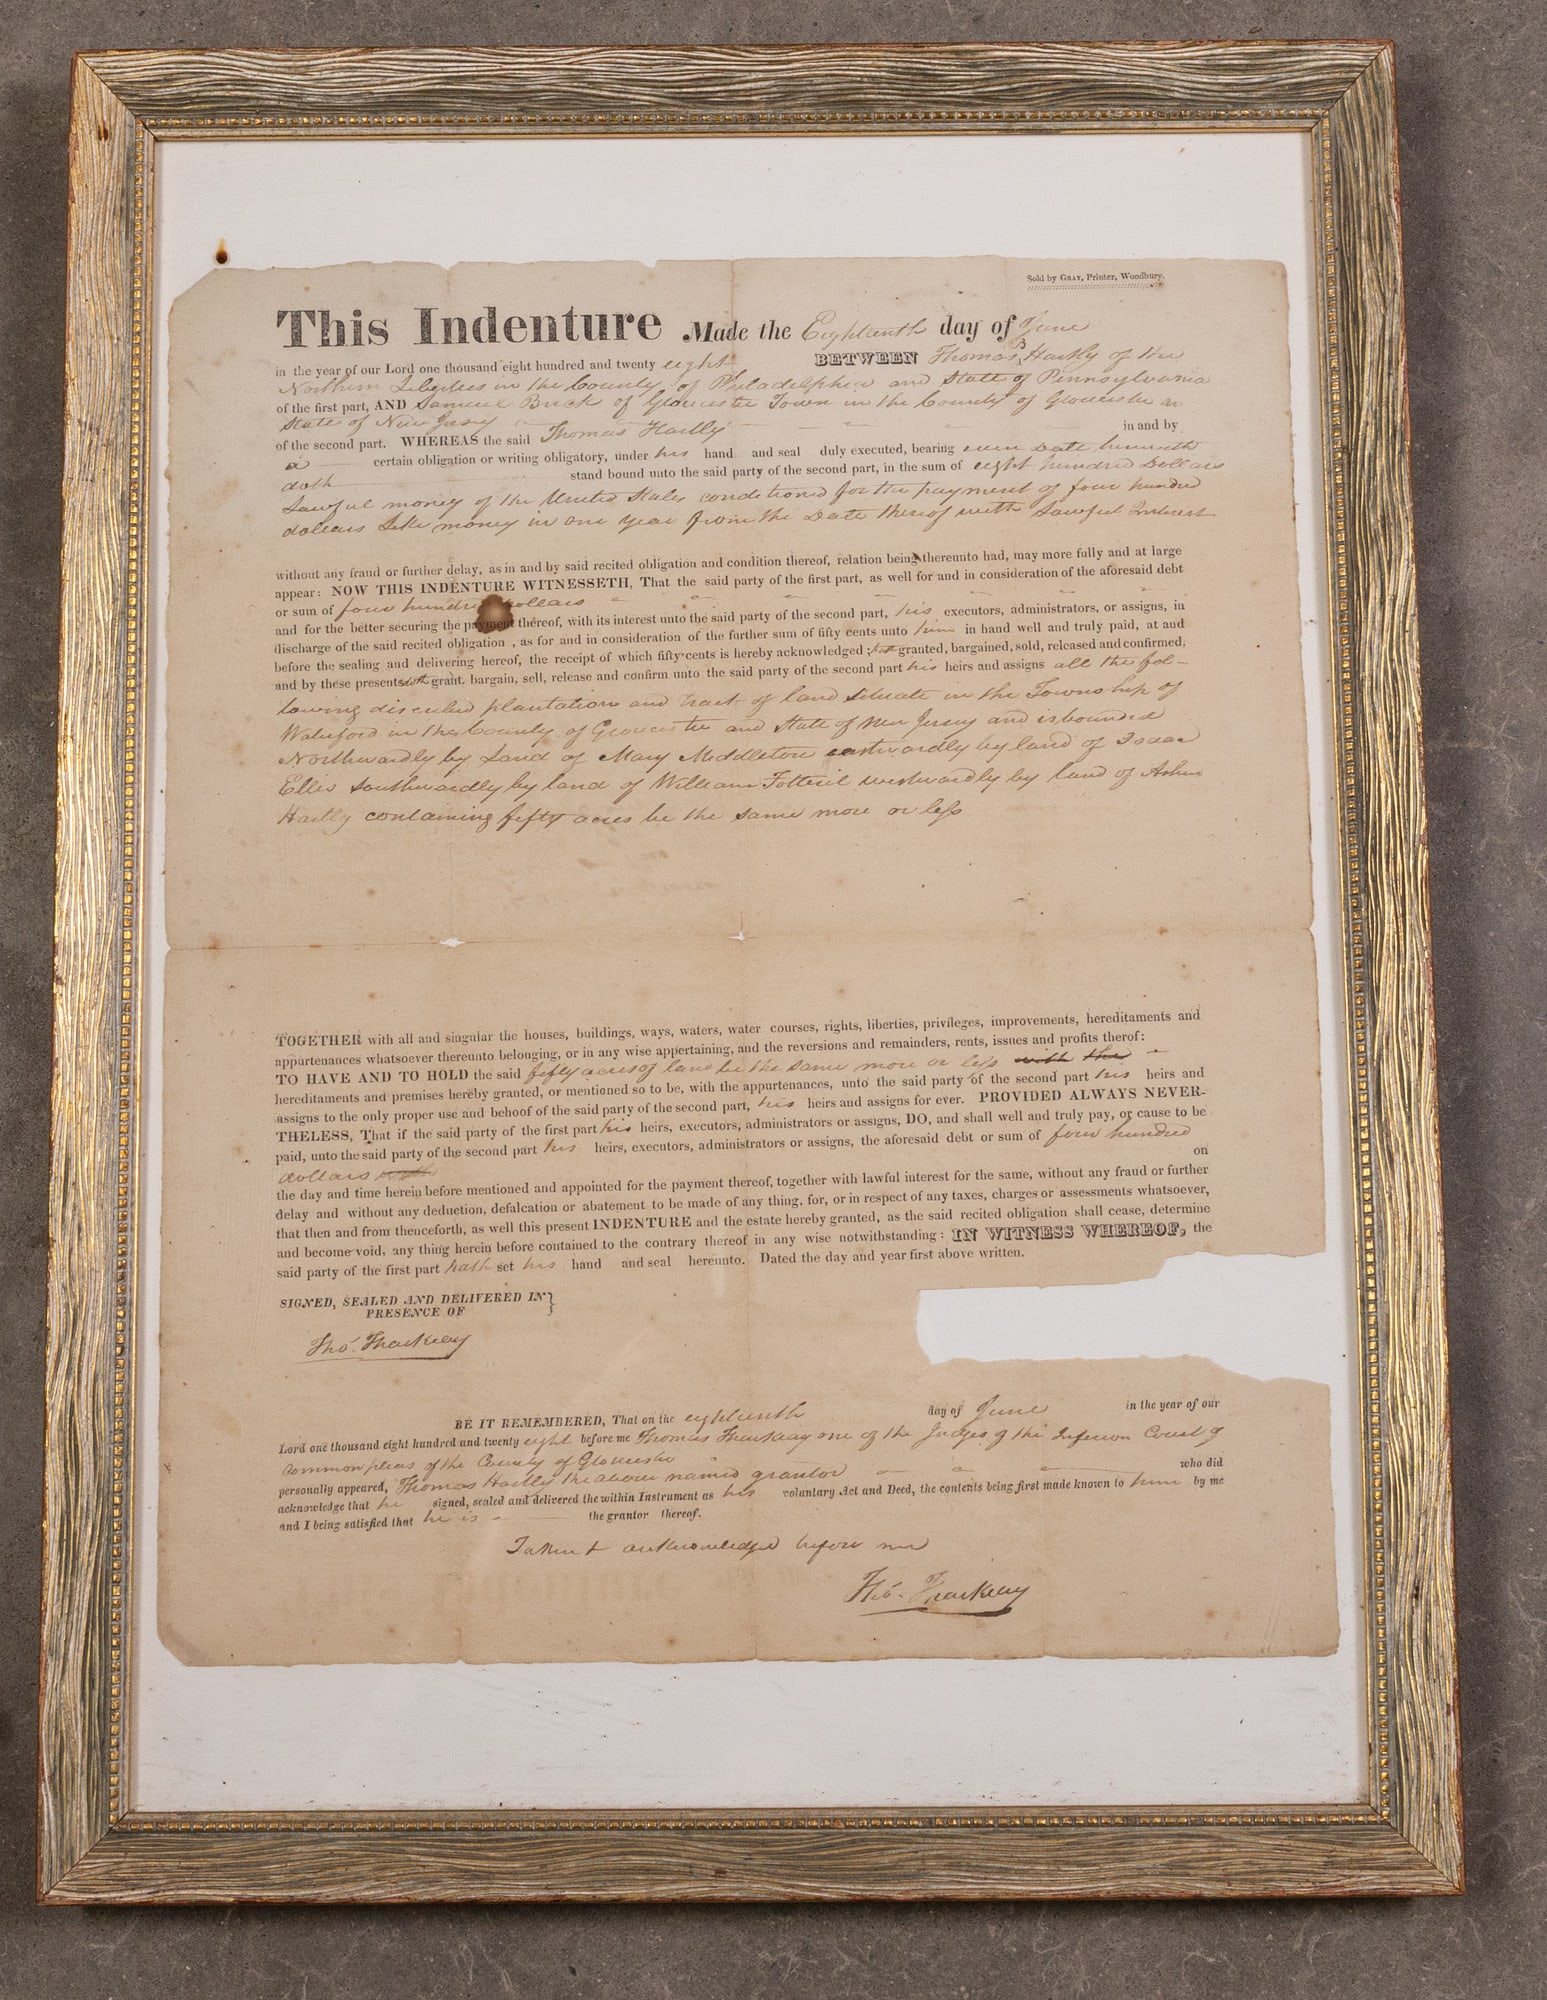 Sold by GRAY, Printer, Woodbury.
This Indenture Made the Eighteenth day of June
in the year of our Lord one thousand eight hundred and twenty eight BETWEEN Thomas B Hartly of the
Northern Liberties in the County of Philadelphia and State of Pennsylvania
of the first part, AND Samuel Brick of Gloucester Town in the County of Gloucester an
State of New Jersey
of the second part. WHEREAS the said Thomas Hartly in and by
a certain obligation or writing obligatory, under his hand and seal duly executed, bearing even Date herewith
doth stand bound unto the said party of the second part, in the sum of eight hundred Dollars
Lawful money of the United States conditioned for the payment of four hundred
dollars Like money in one year from the Date thereof with Lawful Interest
without any fraud or further delay, as in and by said recited obligation and condition thereof, relation being thereunto had, may more fully and at large
appear: NOW THIS INDENTURE WITNESSETH, That the said party of the first part, as well for and in consideration of the aforesaid debt
or sum of four hundred dollars
and for the better securing the payment thereof, with its interest unto the said party of the second part, his executors, administrators, or assigns, in
discharge of the said recited obligation , as for and in consideration of the further sum of fifty cents unto him in hand well and truly paid, at and
before the sealing and delivering hereof, the receipt of which fifty cents is hereby acknowledged ; hath granted, bargained, sold, released and confirmed,
and by these presents doth grant. bargain, sell, release and confirm unto the said party of the second part his heirs and assigns all the fol-
lowing discribed plantation and tract of land Situate in the Township of
Waterford in the County of Gloucester and State of New Jersey and is bounded
Northwardly by Land of Mary Middleton eastwardly by land of Isaac
Ellis Southwardly by land of William westwardly by land of
Hartly containing fifty acres be the same more or less
TOGETHER with all and singular the houses, buildings, ways, waters, water courses, rights, liberties, privileges, improvements, hereditaments and
appurtenances whatsoever thereunto belonging, or in any wise appertaining, and the reversions and remainders, rents, issues and profits therof:
TO HAVE AND TO HOLD the said fifty acres of land be the same more or less with the
hereditaments and premises hereby granted, or mentioned so to be, with the appurtenances, unto the said party of the second part his heirs and
assigns to the only proper use and behoof of the said party of the second part, his heirs and assigns for ever. PROVIDED ALWAYS NEVER-
THELESS, That if the said party of the first part his heirs, executors, administrators or assigns, DO, and shall well and truly pay, or cause to be
paid, unto the said party of the second part his heirs, executors, administrators or assigns, the aforesaid debt or sum of four hundred
dollars on
the day and time herein before mentioned and appointed for the payment thereof, together with lawful interest for the same, without any fraud or further
delay and without any deduction, defalcation or abatement to be made of any thing, for, or in respect of any taxes, charges or assessments whatsoever,
that then and from thenceforth, as well this present INDENTURE and the estate hereby granted, as the said recited obligation shall cease, determine
and become void, any thing herein before contained to the contrary thereof in any wise notwithstanding: IN WITNESS WHEREOF, the
said party of the first part hath set his hand and seal hereunto. Dated the day and year first above written.
SIGNED, SEALED AND DELIVERED IN }
PRESENCE OF
Tho. Thackray
BE IT REMEMBERED, That on the eighteenth day of June in the year of our
Lord one thousand eight hundred and twenty eight before me Thomas Thackray one of the Judges of the Inferior Court of
Common pleas of the County of Gloucester who did
personally appeared, Thomas Hartly the above named grantor
acknowledge that he signed, sealed and delivered the within Instrument as his voluntary Act and Deed, the contents being first made known to him by me
and I being satisfied that he is the grantor thereof.
Taken & acknowledged before me
Tho. Thackray